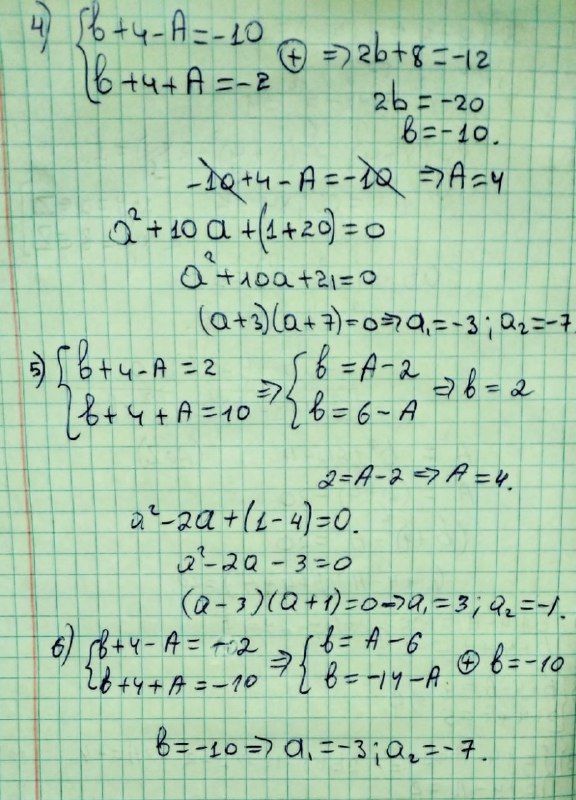 4) { b+4-A=-10
b+4+A=-2 ⊕ => 2b+8=-12
2b=-20
b=-10.
-10+4-A=-10 => A=4
a²+10a+(1+20)=0
a²+10a+21=0
(a+3)(a+7)=0=>a₁=-3; a₂=-7
5) { b+4-A=2
b+4+A=10 => { b=A-2
b=6-A => b=2
2=A-2 => A=4.
a²-2a+(1-4)=0.
a²-2a-3=0
(a-3)(a+1)=0=>a₁=3; a₂=-1.
6) { b+4-A=-2
b+4+A=-10 => { b=A-6
b=-14-A ⊕ b=-10
b=-10=> a₁=-3; a₂=-7.